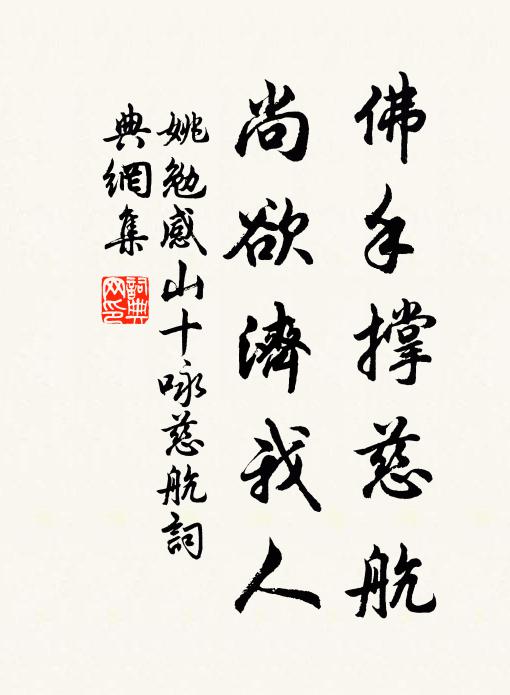 佛手撐慈航
尚欲濟我人
姚勉感山十咏慈航詞
典網集
詞典网印